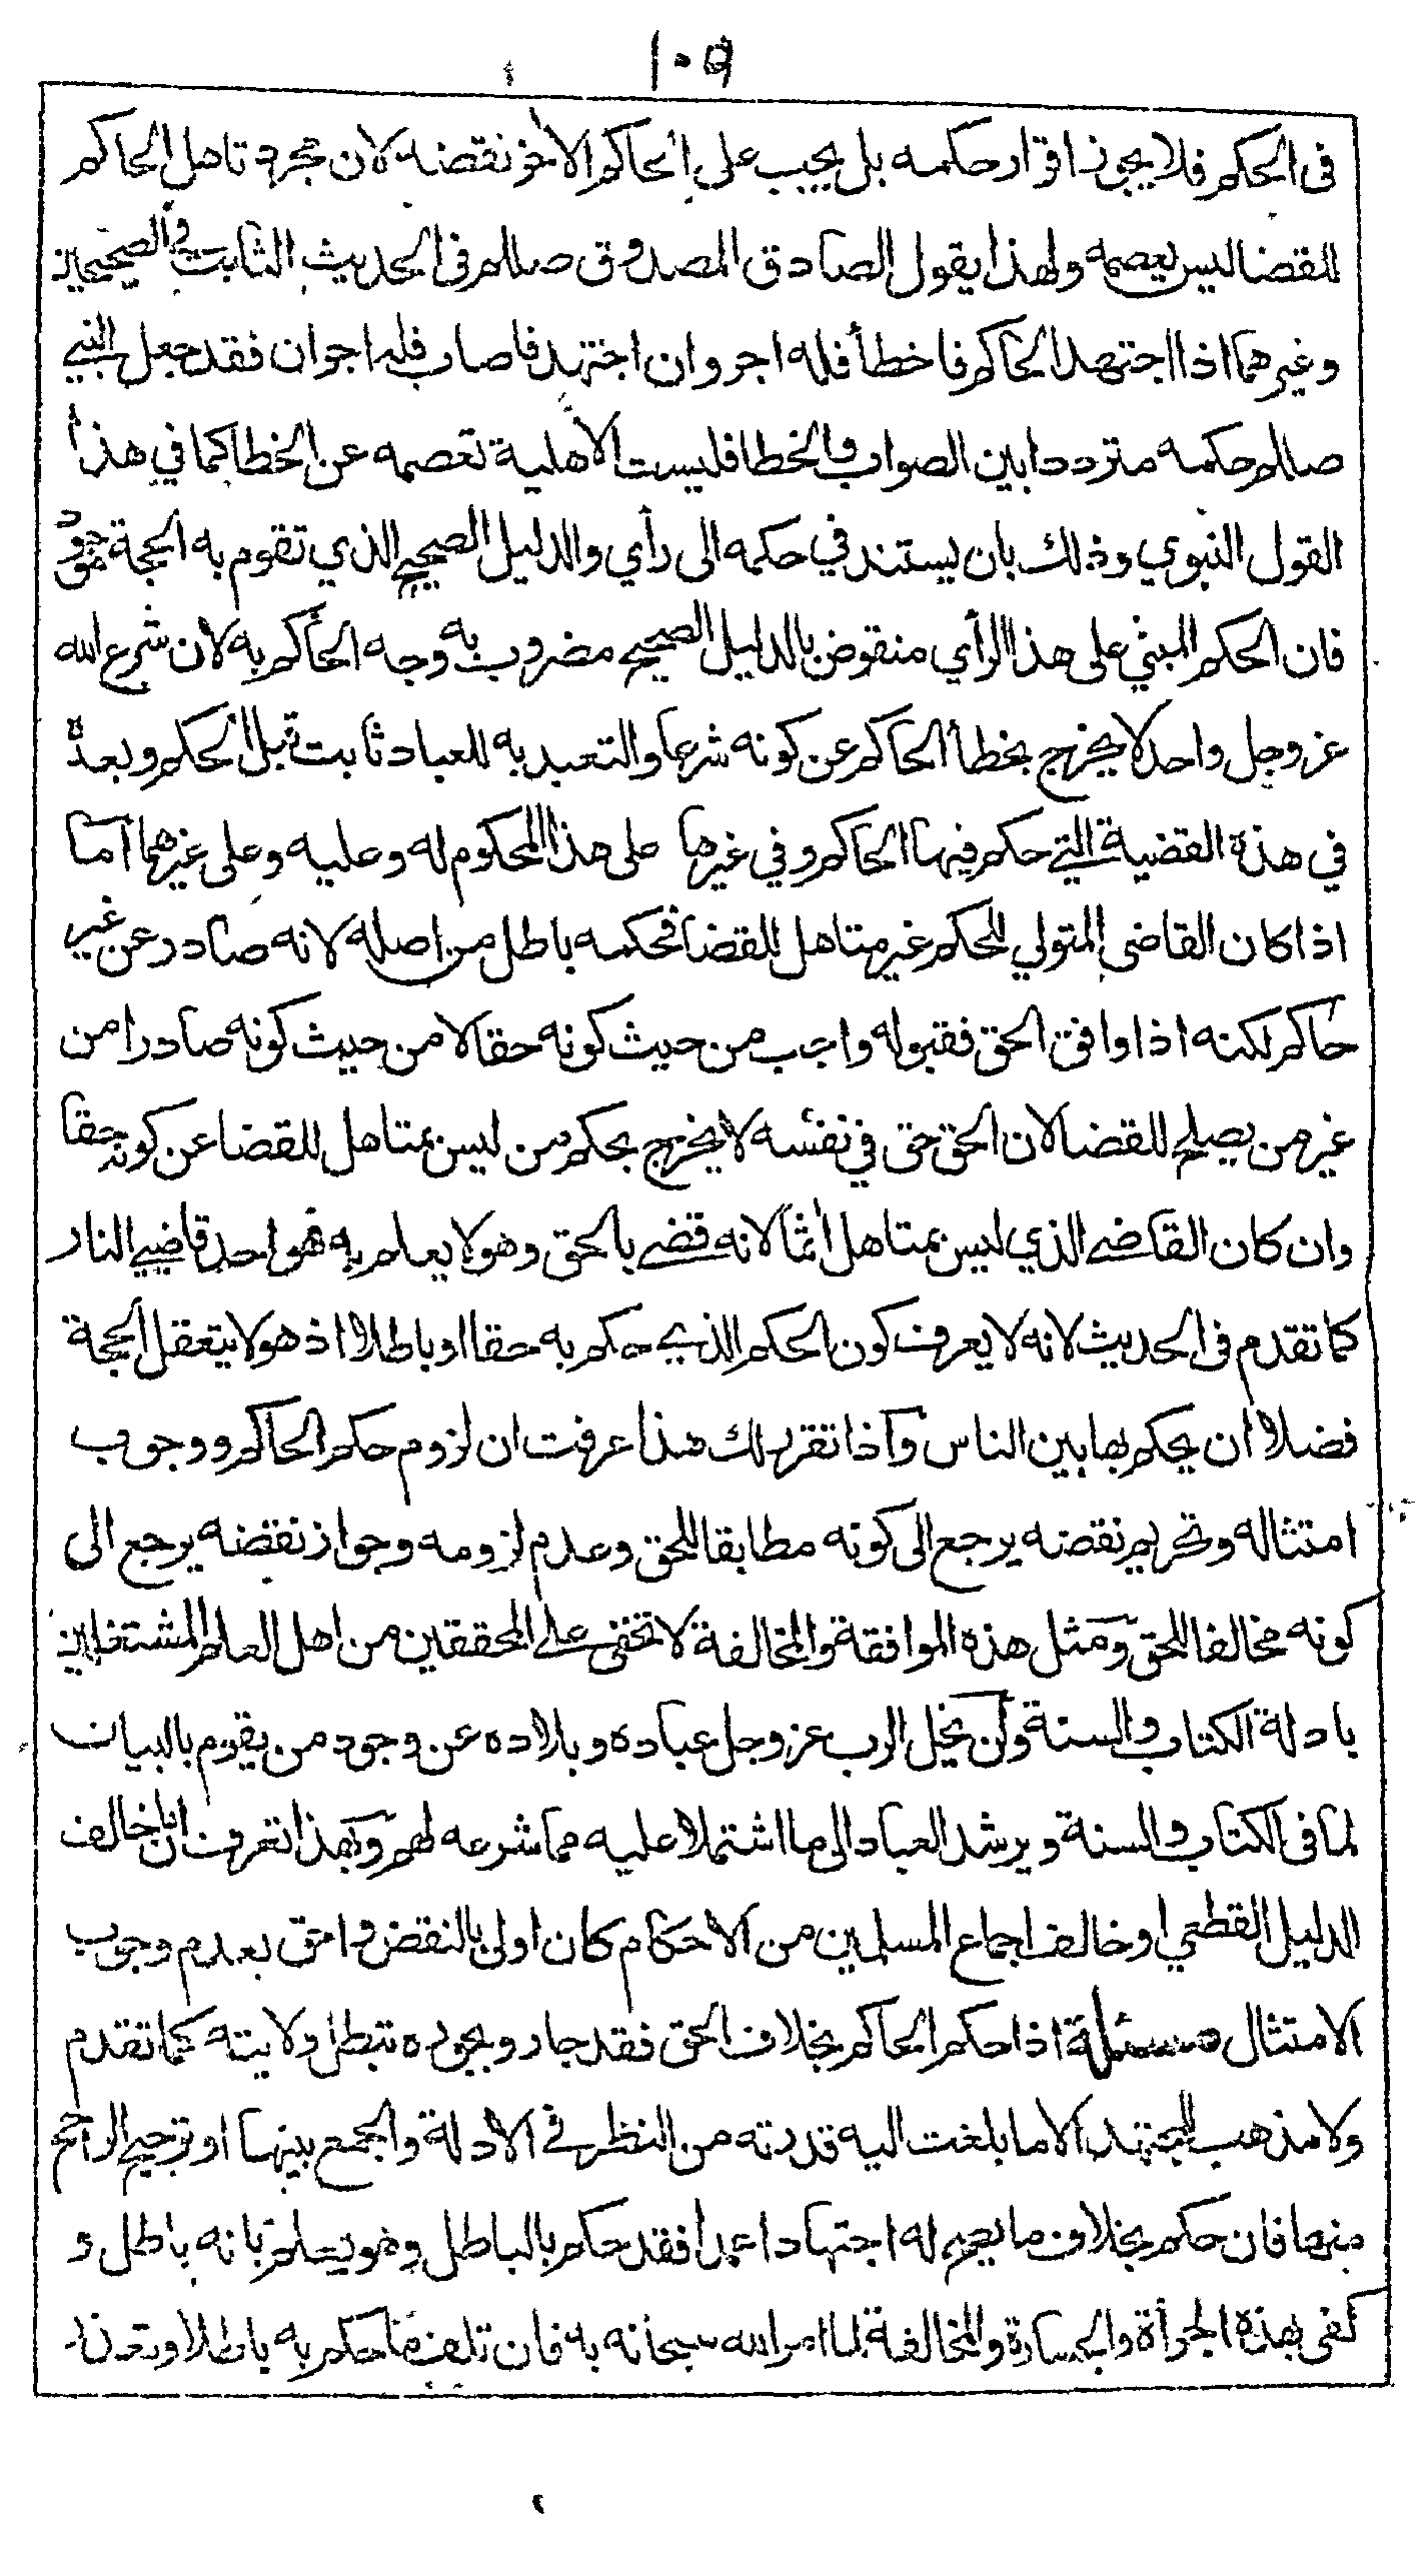 ١٠٩
فى الحكم فلا يجوز اقرار حكمه بل يجب على الحاكم الأخر نقضه لان مجرد تاهل الحاكم
للقضا ليس يعصمه ولهذا يقول الصادق المصدوق صللم فى الحديث الثابت فى الصحيحين
وغيرهما اذا اجتهد الحاكم فاخطأ فله اجر وان اجتهد فاصاب فله اجران فقد جعل النبي
صللم حكمه مترددا بين الصواب والخطا فليست الاهلية تعصمه عن الخطا كما في هذا
القول النبوي وذلك بان يستند في حكمه الى رأي والدليل الصحيح الذي تقوم به الحجة موجود
فان الحكم المبني على هذا الرأي منقوض بالدليل الصحيح مضروب به وجه الحاكم به لان شرع الله
عز وجل واحد لا يخرج بخطأ الحاكم عن كونه شرعا والتعبد به للعباد ثابت قبل الحكم وبعده
في هذه القضية التي حكم فيها الحاكم وفي غيرها على هذا المحكوم له وعليه وعلى غيرهما اما
اذا كان القاضى المتولي للحكم غير متاهل للقضا فحكمه باطل من اصله لانه صادر عن غير
حاكم لكنه اذا وافق الحق فقبوله واجب من حيث كونه حقا لا من حيث كونه صادرا من
غير من يصلح للقضا لان الحق حق في نفسه لا يخرج بحكم من ليس بمتاهل للقضا عن كونه حقا
وان كان القاضي الذي ليس بمتاهل أثما لانه قضى بالحق وهو لا يعلم به فهو احد قاضيي النار
كما تقدم فى الحديث لانه لا يعرف كون الحكم الذي حكم به حقا او باطلا اذ هو لا يتعقل الحجة
فضلا ان يحكم بها بين الناس واذا تقرر لك هذا عرفت ان لزوم حكم الحاكم ووجوب
امتثاله وتحريم نقضه يرجع الى كونه مطابقا للحق وعدم لزومه وجواز نقضه يرجع الى
كونه مخالفا للحق ومثل هذه الموافقة والمخالفة لا تخفى على المحققين من اهل العلم المشتغلين
بادلة الكتاب والسنة ولن يخل الرب عز وجل عباده وبلاده عن وجود من يقوم بالبيان
لما فى الكتاب والسنة ويرشد العباد الى ما اشتملا عليه مما شرعه لهم وبهذا تعرف ان ما خالف
الدليل القطعي او خالف اجماع المسلمين من الاحكام كان اولى بالنقض واحق بعدم وجوب
الامتثال مسئلة اذا حكم الحاكم بخلاف الحق فقد جار وبجوره تبطل ولايته كما تقدم
ولا مذهب للمجتهد الا ما بلغت اليه قدرته من النظر في الادلة والجمع بينها او ترجيح الراجح
منها فان حكم بخلاف ما يصح له اجتهادا عمدا فقد حكم بالباطل وهو يعلم بانه باطل و
كفى بهذه الجرأة والجسارة والمخالفة لما امر الله سبحانه به فان تلف ما حكم به باطلا وتعذر